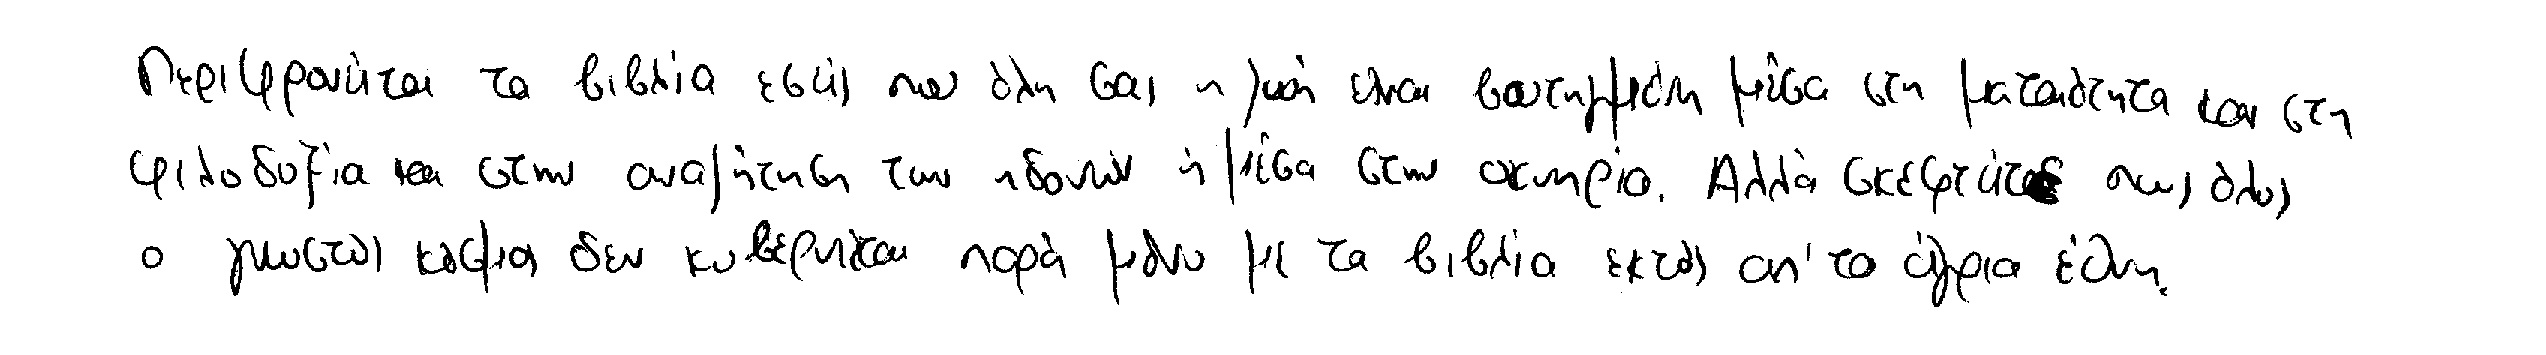 Περιφρονείται τα βιβλία εσείς που όλη σας η ζωή είναι βουτηγμένη μέσα στη ματαιότητα και στη
φιλοδοξία και στην αναζήτηση των ηδονών ή μέσα στην οκνηρία. Αλλά σκεφτείτε πως όλος
ο γνωστός κόσμος δεν κυβερνιέται παρά μόνο με τα βιβλία εκτός απ' τα άγρια έθνη.